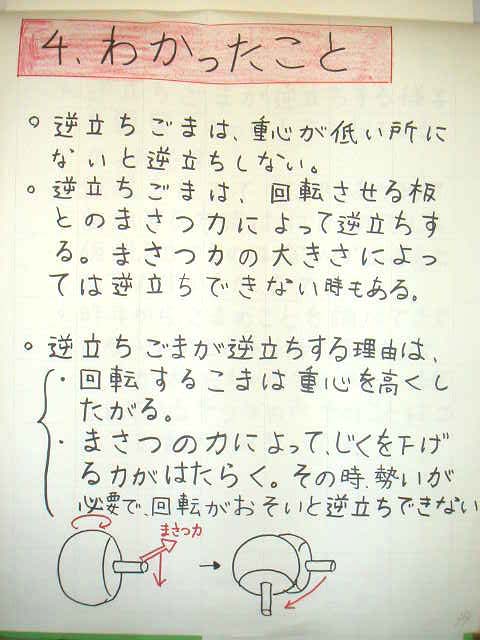 4、わかったこと
○ 逆立ちごまは、重心が低い所に
ないと逆立ちしない。
○ 逆立ちごまは、回転させる板
とのまさつ力によって逆立ちす
る。まさつ力の大きさによっ
ては逆立ちできない時もある。
○ 逆立ちごまが逆立ちする理由は、
・回転するこまは重心を高くし
たがる。
・まさつの力によって、じくを下げ
る力がはたらく。その時、勢いが
必要で、回転がおそいと逆立ちできない
まさつ力